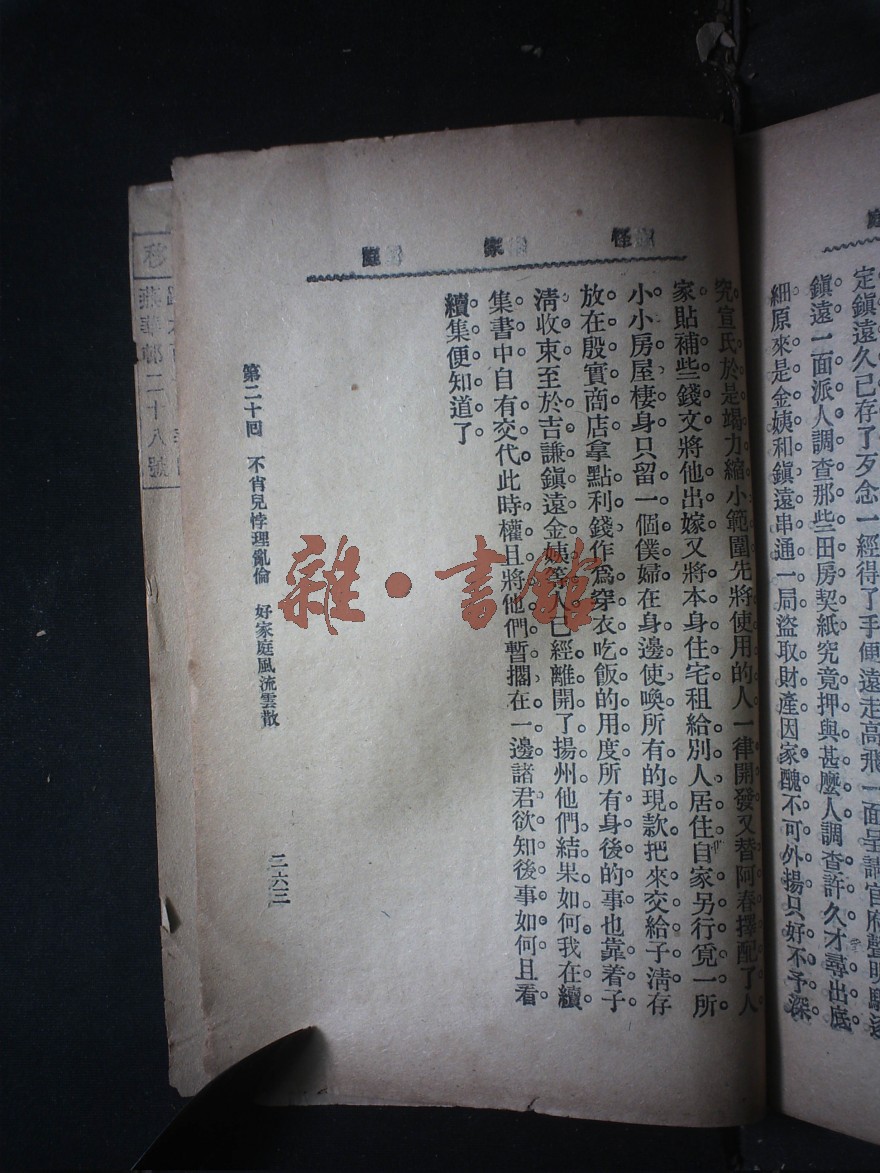 定鎮遠久已存了歹念一經得了手便遠走高飛一面呈請官府聲明驅逐
鎮遠一面派人調查那些田房契紙究竟押與甚麼人調查許久才尋出底
細原來是金姨和鎮遠串通一局盜取財產因家醜不可外揚只好不予深
怪家庭
究宣氏於是竭力縮小範圍先將使用的人一律開發又替阿春擇配了人
家貼補些錢文將他出嫁又將本身住宅租給別人居住自家另行覓一所
小小房屋棲身只留一個僕婦在身邊使喚所有的現款把來交給子淸存
放在殷實商店拿點利錢作爲穿衣吃飯的用度所有身後的事也靠着子
淸收束至於吉謙鎮遠金姨等人已經離開了揚州他們結果如何我在續
集書中自有交代此時權且將他們暫擱在一邊諸君欲知後事如何且看
續集便知道了
第二十回 不肖兒悖理亂倫 好家庭風流雲散
二六三
雜·書館
移
燕華邨二十八號